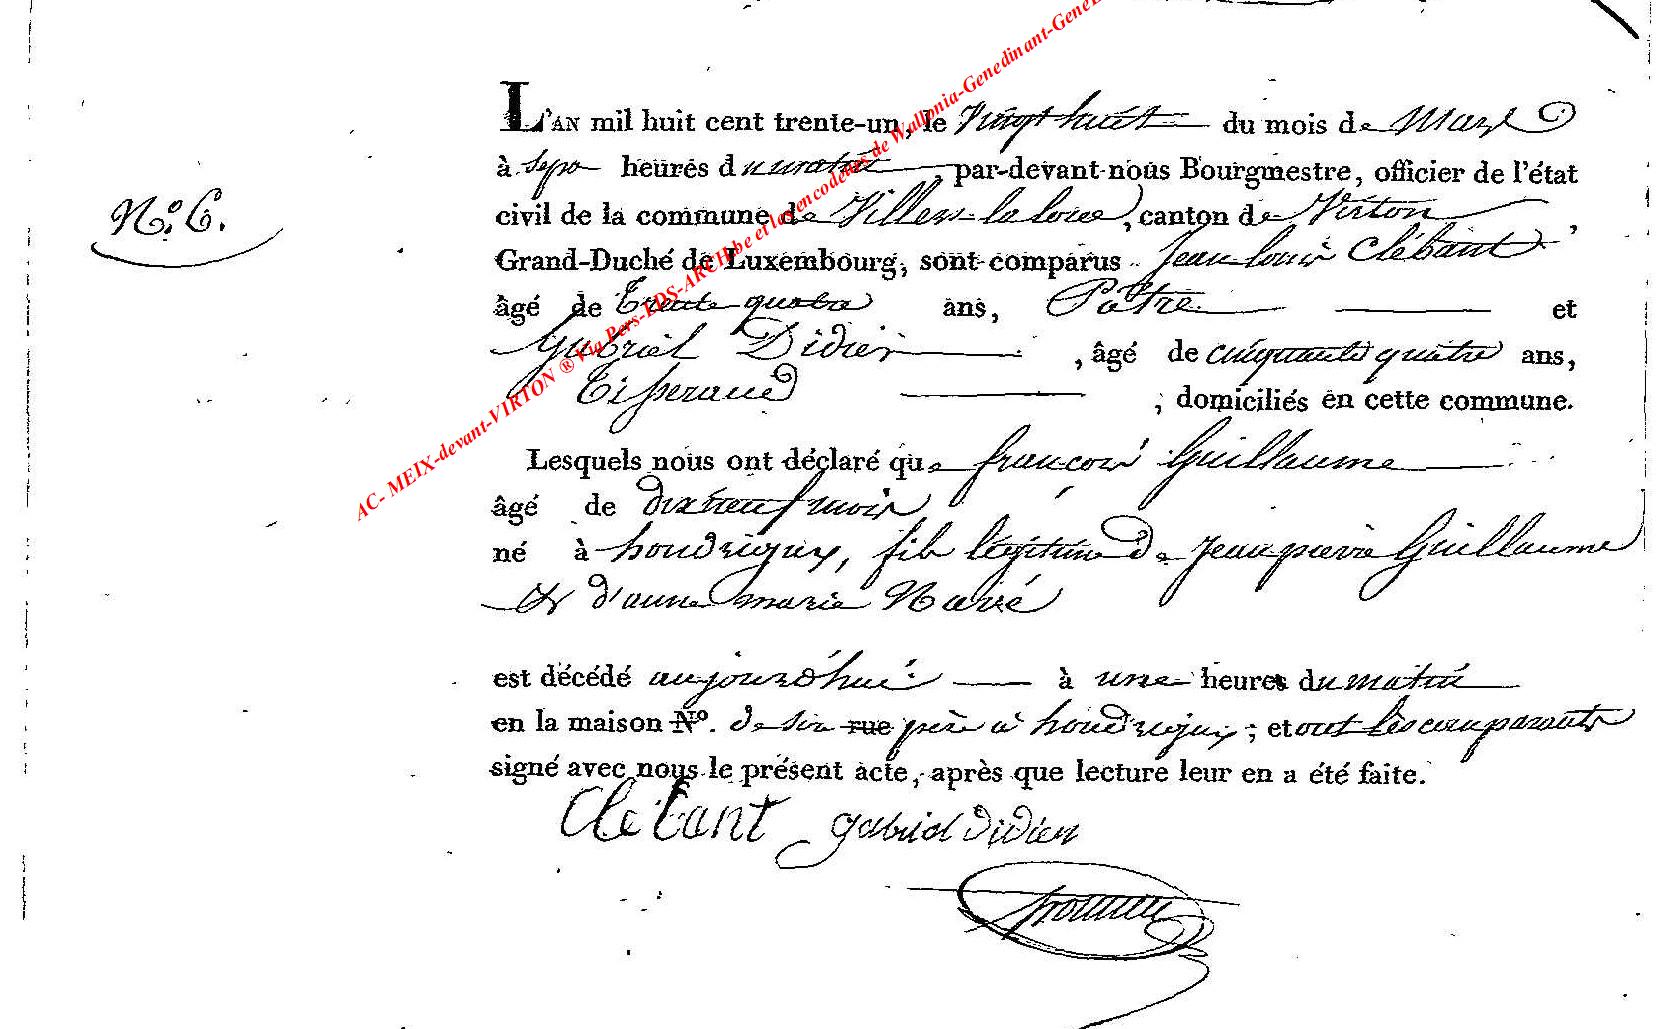 L'AN mil huit cent trente-un, le Vingt huit du mois de Mars
à sept heures du matin, par-devant nous Bourgmestre, officier de l'état
N.o 6.
civil de la commune de Villers la loue, canton de Virton,
Grand-Duché de Luxembourg, sont comparus Jean louis Clébant
âgé de Trente quatre ans, Pâtre et
Gabriel Didier, âgé de cinquante quatre ans,
Tisserand, domiciliés en cette commune.
Lesquels nous ont déclaré que françois Guillaume
âgé de dix neuf mois
né à houdrigny, fils légitime de Jean pierre Guillaume
& d'anne marie Navé
est décédé aujourd'hui à une heures du matin
en la maison No. de son rue père à houdrigny; et ont les comparants
signé avec nous le présent acte, après que lecture leur en a été faite.
Clébant gabriel didier
AC- MEIX-devant-VIRTON ® Via Pers-LDS-ARCH.be et les encodeurs de Wallonia-Genedinant-GeneL